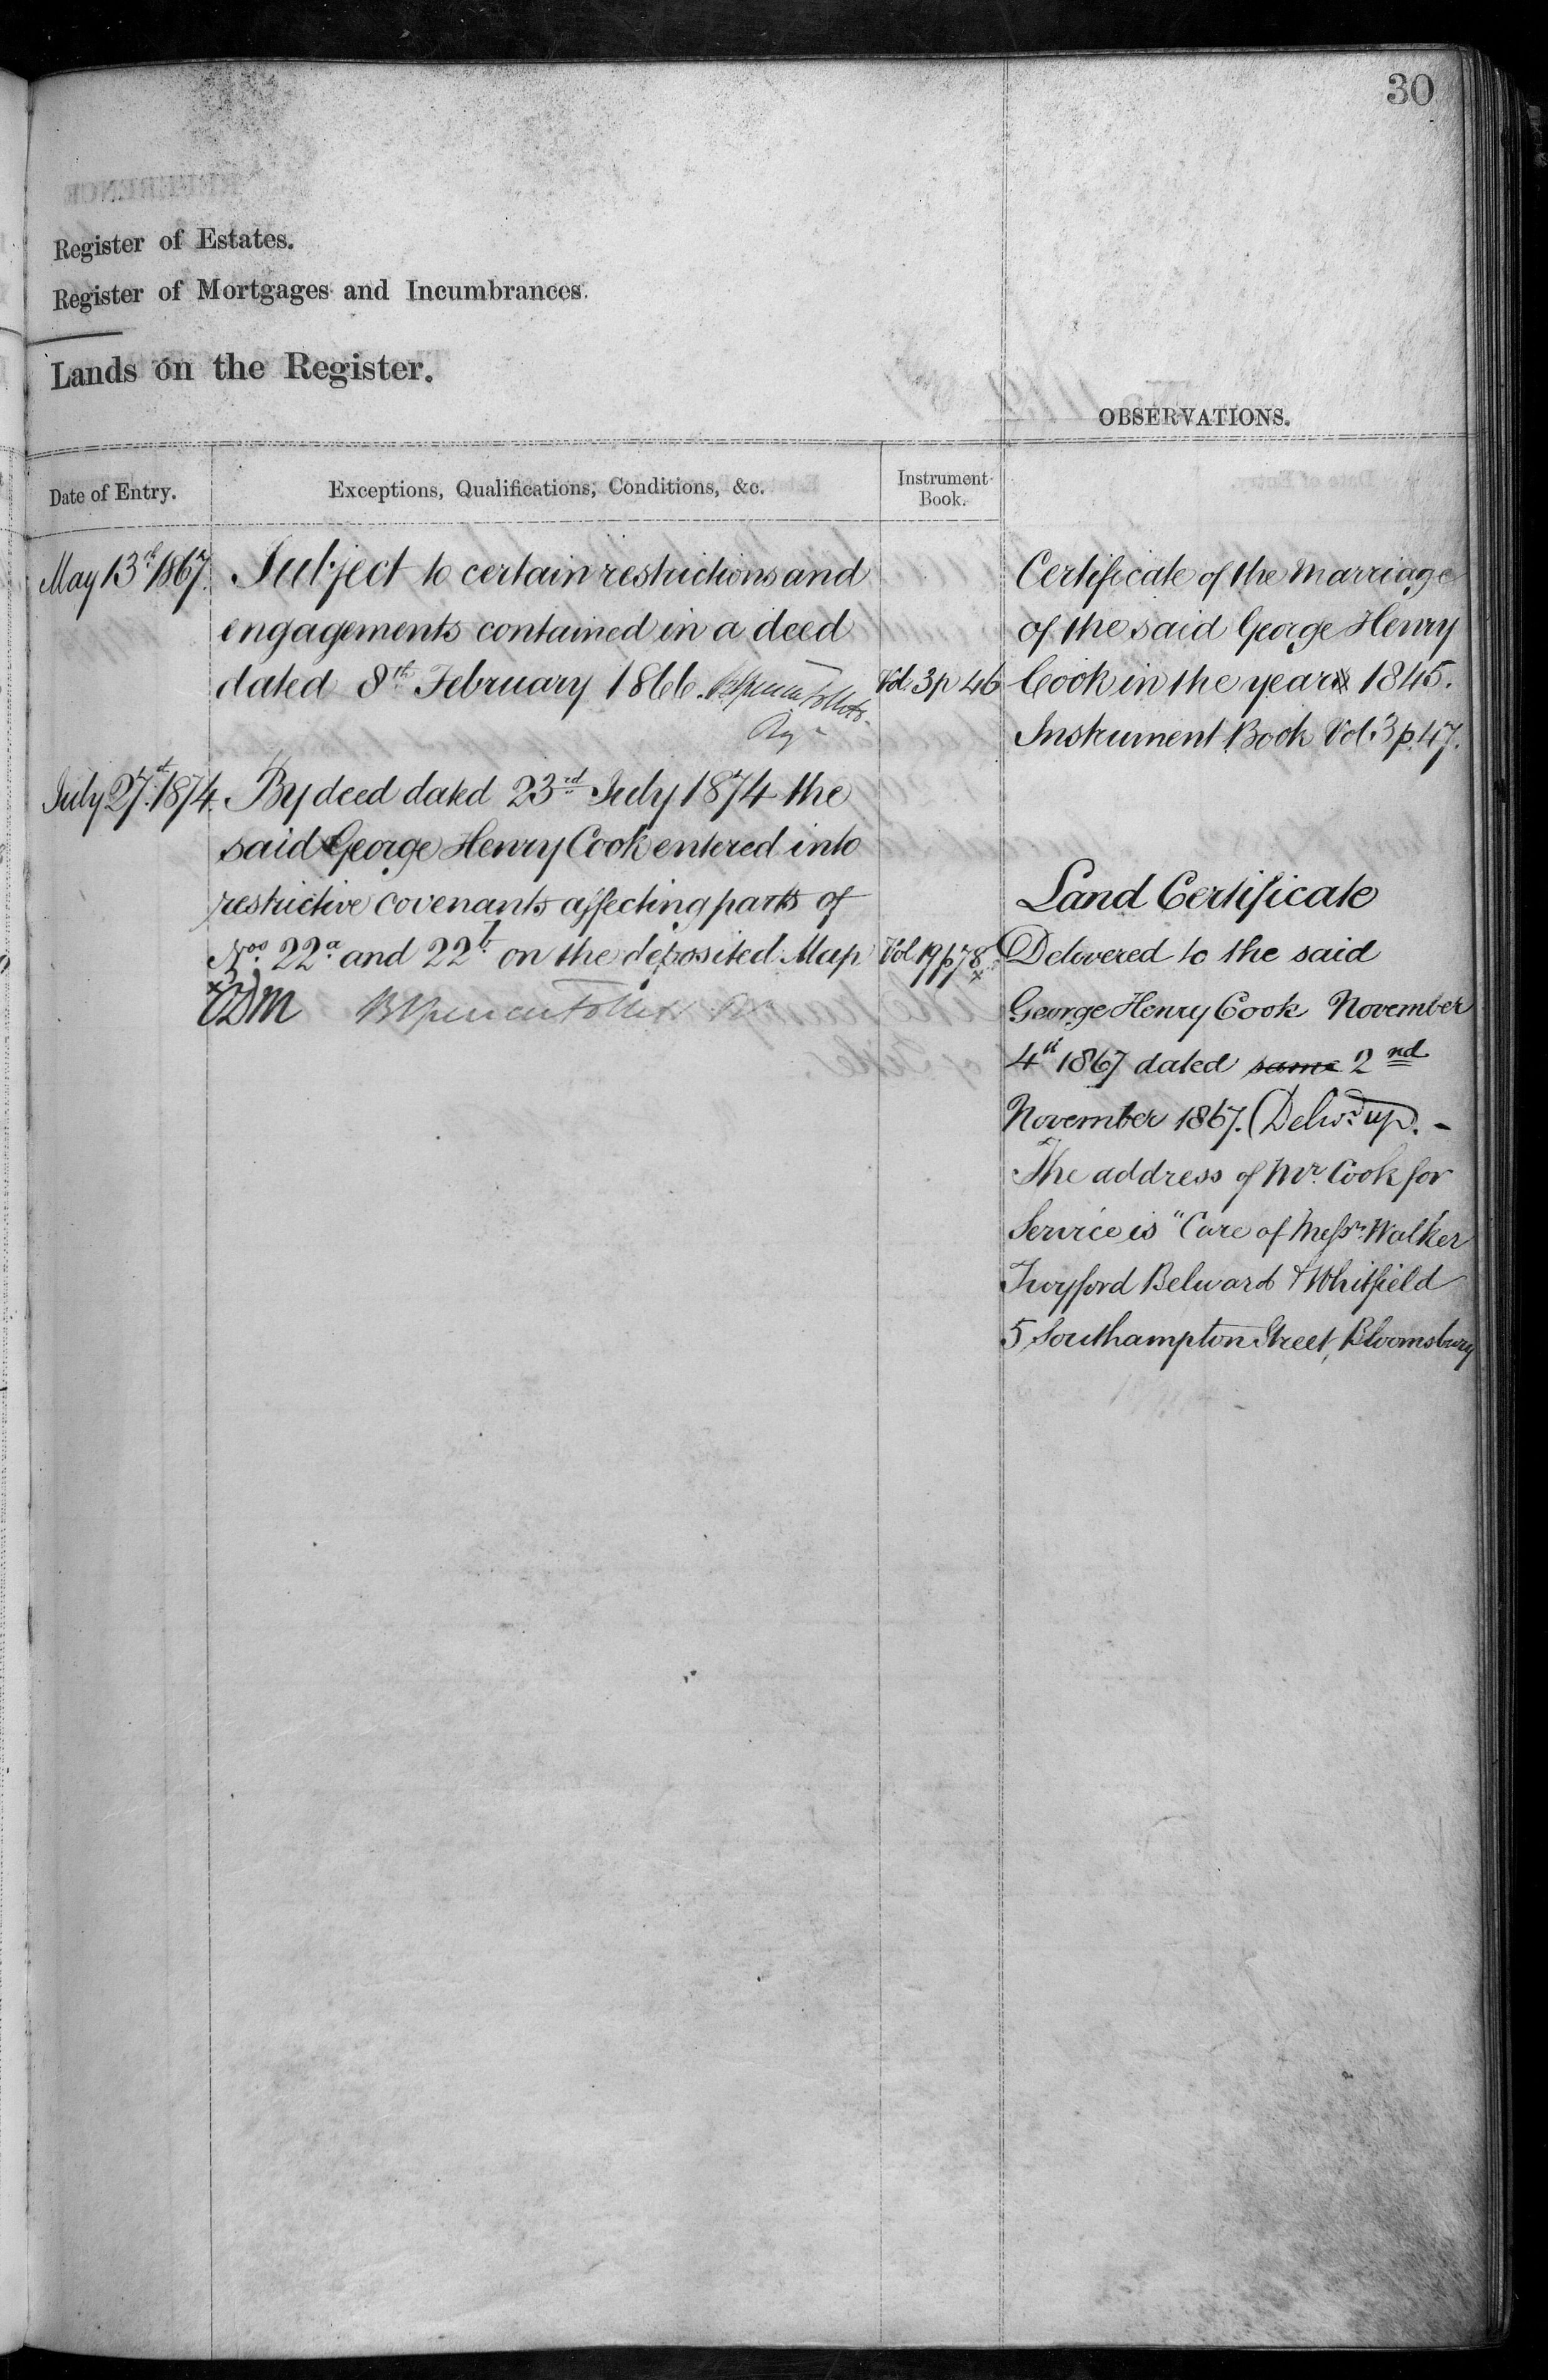 30
Register of Estates.
Register of Mortgages and Incumbrances.
Lands on the Register.
OBSERVATIONS.
Date of Entry.
Exceptions, Qualifications, Conditions, &c.
Instrument Book.
May 13th 1867.
Subject to certain restrictions and
engagements contained in a deed
dated 8th February 1866.
Vol. 3 p 46
July 27th 1874.
By deed dated 23rd July 1874 the
said George Henry Cook entered into
restrictive covenants affecting parts of
Nos. 22a and 22b on the deposited Map
Vol 19 p 78
Certificate of the Marriage
of the said George Henry
Cook in the year 1845.
Instrument Book Vol. 3 p. 47.
Land Certificate
Delivered to the said
George Henry Cook November
4th 1867 dated same 2nd
November 1867. (Delivd up. -
The address of Mr. Cook for
Service is "Care of Messrs. Walker
Twyford Belward & Whitfield
5 Southampton Street, Bloomsbury